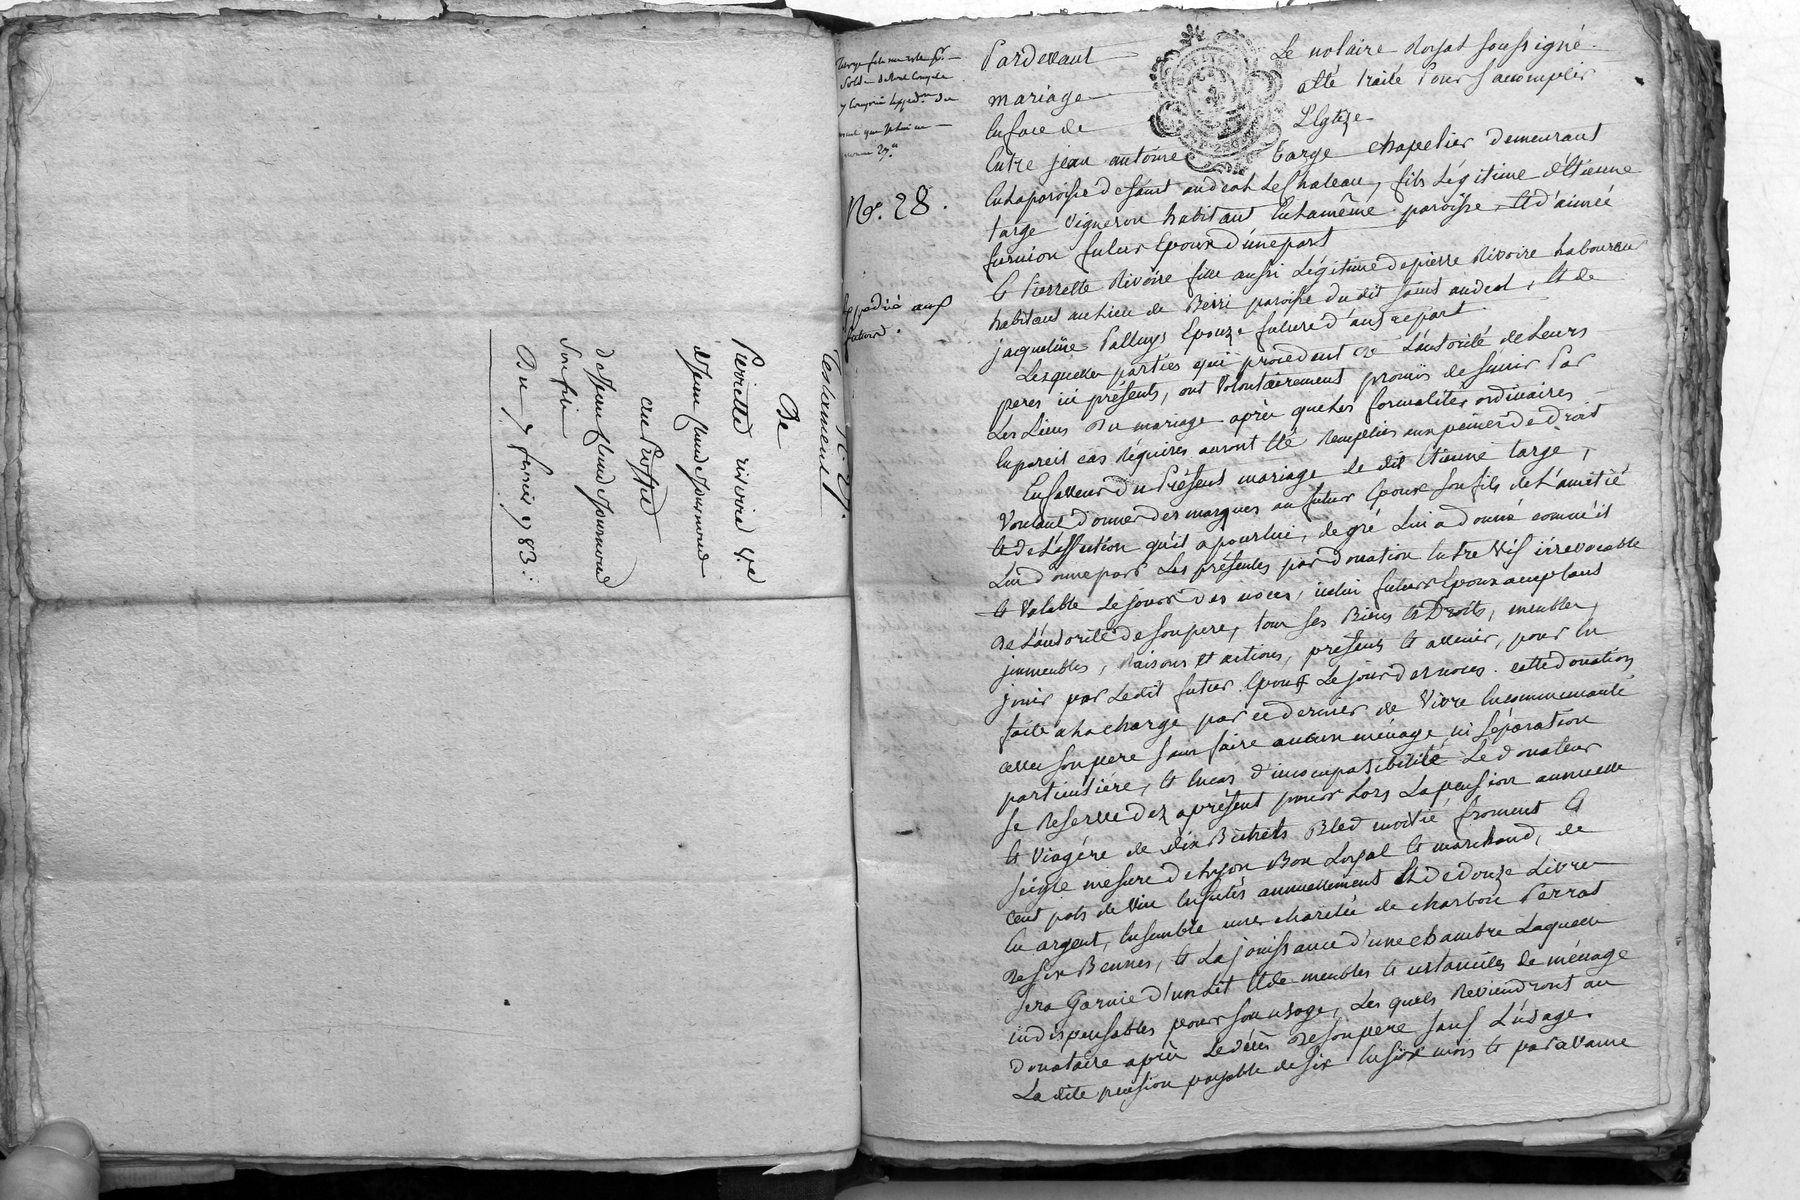 N 27.
Testament
De
Pierrette rivoire Ve
d'jean claude journoud
au Proffit
de jean claude journoud
son fils
Du 7 fevrier 1783.
No. 28.
Expedié aux
futurs.
Pardevant Le notaire Royal soussigné
mariage a été traité pour s'accomplir
En face de L'Eglize
Entre jean antoine targe chapelier demeurant
En la paroisse de saint andeol Le Chateau, fils Légitime d'Etienne
targe vigneron habitant En la même paroisse, Et d'aimée
furnion futur Epoux d'une part
Et Pierrette Rivoire fille aussi Légitime de pierre Rivoire Laboureur
habitant au Lieu de Beiri paroisse du dit saint andeol, Et de
jacqueline Palluys Epouze future d'autre part
Lesquelles parties qui procedent de L'autorité de Leurs
peres ici présents, ont volontairement promis de s'unir Par
Les Liens du mariage après que Les formalités ordinaires
En pareil cas Réquises auront Eté Remplies aux peines de droit
En faveur du Présent mariage Le dit Etienne targe,
Voulant donner des marques au futur Epoux son fils de L'amitié
Et de L'affection qu'il a pour lui, de gré Lui a donné comme il
Lui donne par Les présentes par donation Entre Vif irrevocable
Et Valable Le jour des nôces, icelui futur Epoux acceptant
De L'autorité de son pere, tous ses Biens Et Droits, meubles,
immeubles, Raisons Et actions, présents Et avenir, pour En
jouir par Le dit futur Epoux Le jour des noces. cette donation
faite a La charge par ce dernier de Vivre En communauté
avec son pere sans faire aucun ménage, ni séparation
particuliére, Et En cas d'incompatibilité Le donateur
se Reserve dez aprésent pour Lors La pension annuelle
Et Viagére de dix Bichets Bled moitié froment Et
seigle mesure de Lyon Bon Loyal Et marchand, de
cent pots de vin annuellement Et de douze Livres
En argent, Ensemble une charetée de charbon Perrat
De six Bennes, Et La jouissance d'une chambre Laquelle
sera Garnie d'un Lit Et de meubles Et ustanciles de ménage
indispensables pour son usage, Les quels Reviendront au
donataire après Le décès De son pere sauf L'usage.
La dite pension payable de six En six mois Et par avance